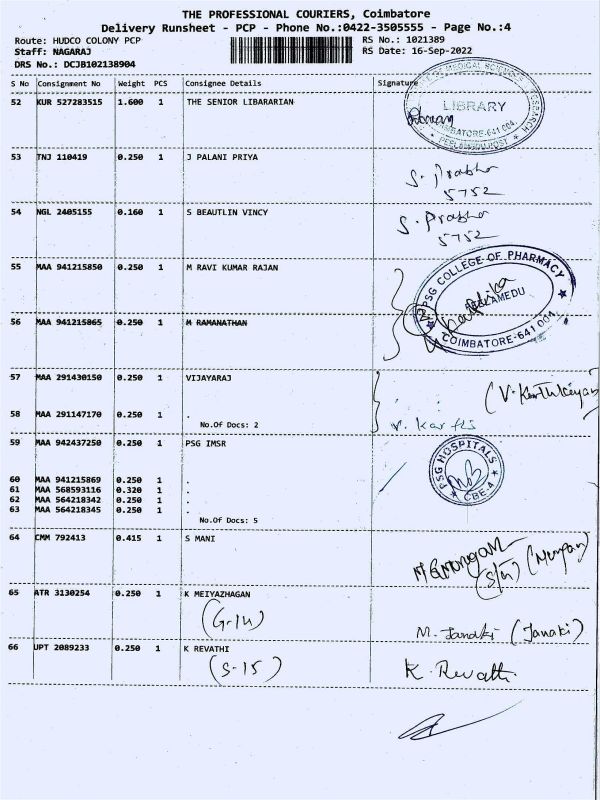 THE PROFESSIONAL COURIERS, Coimbatore
Delivery Runsheet - PCP - Phone No.:0422-3505555 - Page No.:4
Route: HUDCO COLONY PCP
RS No.: 1021389
Staff: NAGARAJ
RS Date: 16-Sep-2022
DRS No.: DCJB102138904
S No Consignment No Weight PCS Consignee Details Signature
52 KUR 527283515 1.600 1 THE SENIOR LIBARARIAN
LIBRARY
COIMBATORE-641 004.
53 TNJ 110419 0.250 1 J PALANI PRIYA
S. Prabha
5752
54 NGL 2405155 0.160 1 S BEAUTLIN VINCY
S. Prabha
5752
55 MAA 941215850 0.250 1 M RAVI KUMAR RAJAN
PSG COLLEGE OF PHARMACY
PEELAMEDU
COIMBATORE-641 004.
56 MAA 941215865 0.250 1 M RAMANATHAN
57 MAA 291430150 0.250 1 VIJAYARAJ
(V. Karthikeyan)
58 MAA 291147170 0.250 1 .
No.Of Docs: 2
59 MAA 942437250 0.250 1 PSG IMSR
PSG HOSPITALS
CBE-4
60 MAA 941215869 0.250 1 .
61 MAA 568593116 0.320 1 .
62 MAA 564218342 0.250 1 .
63 MAA 564218345 0.250 1 .
No.Of Docs: 5
64 CMM 792413 0.415 1 S MANI
65 ATR 3130254 0.250 1 K MEIYAZHAGAN
(G-14)
M. Janaki (Janaki)
66 UPT 2089233 0.250 1 K REVATHI
(S-15)
K. Revathi